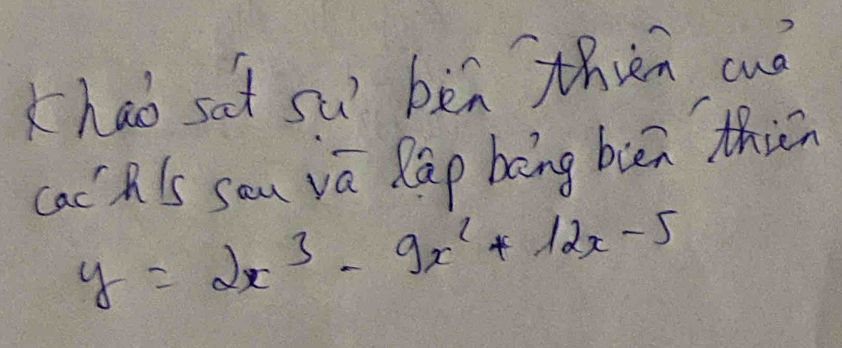 Khảo sát sự biến thiên của
các h/s sau và lập bảng biến thiên
y = 2x³ - 9x² + 12x - 5